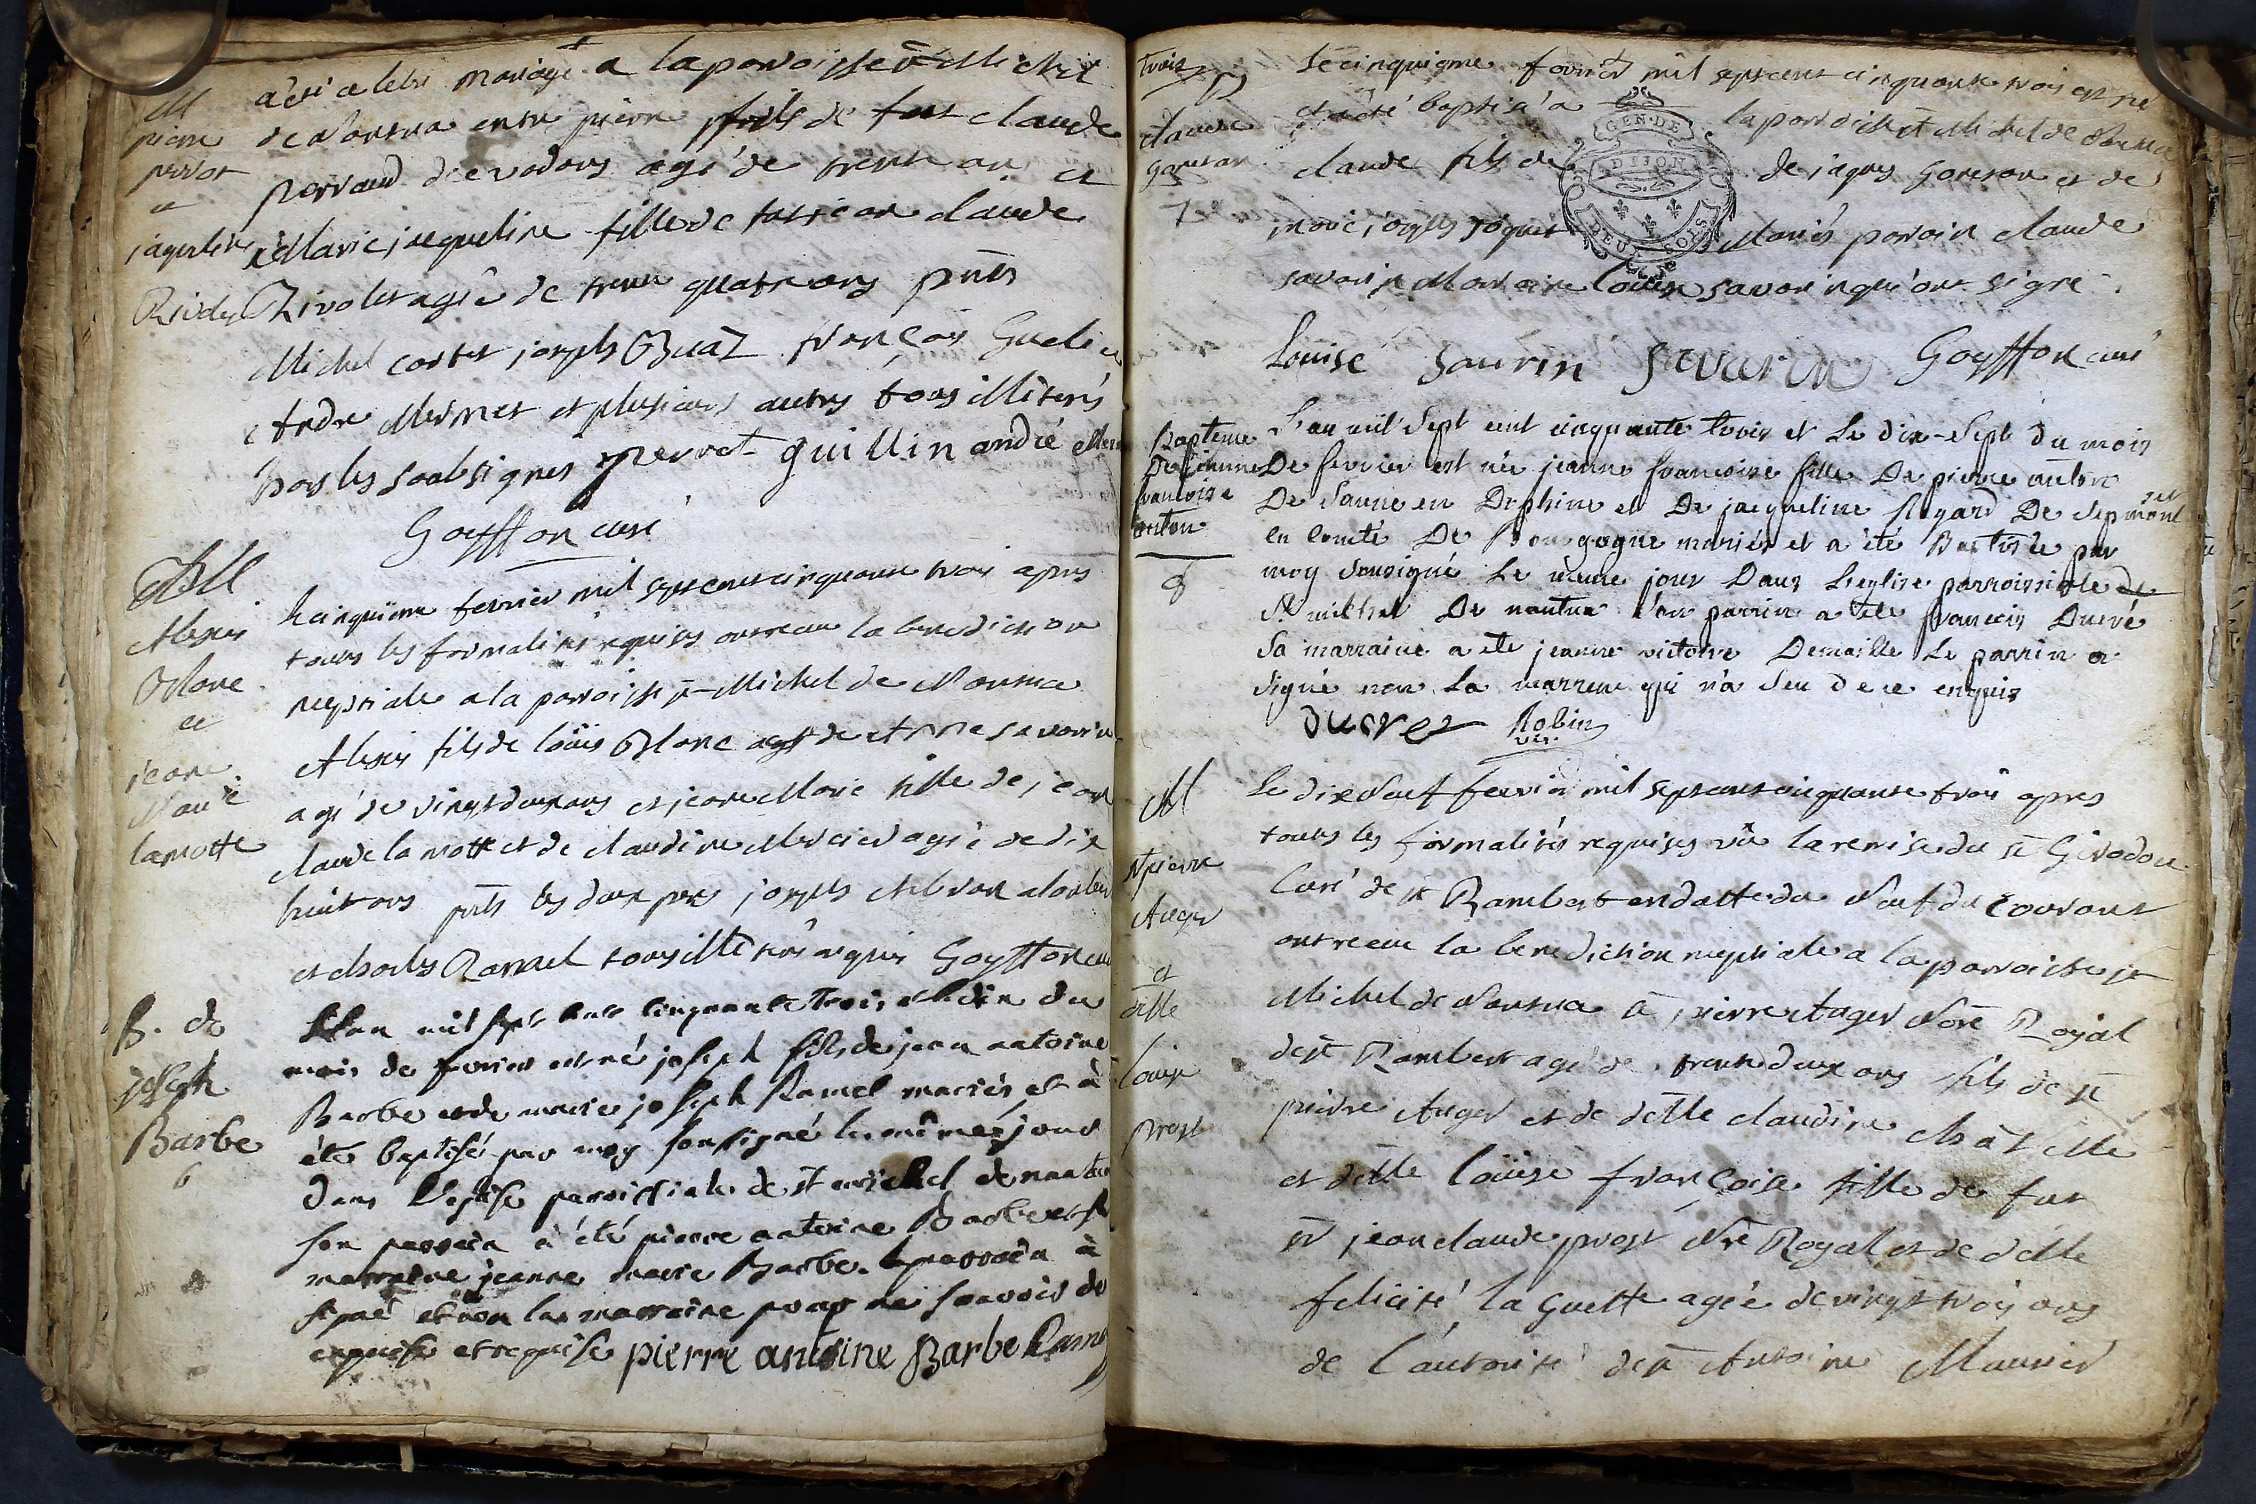 a été célébré mariage a la paroisse st Michel
M
pierre
perrot
et
jaqueline
de Nantua entre pierre fils de feu claude
perraud agé de trente an et
Marie jacqueline fille de
Rivolet agée de trente quatre ans pnts
Michel joseph Buaz françois
André Mermet et plusieurs autres tous illiterés
hors les soubsignes perret guillin andré
Goyffon curé
M
Alexis
Blanc
et
jeane
Marie
lamotte
le cinquieme fevrier mil sept cent cinquante trois apres
toutes les formalités requises ont receu la benediction
nuptiale a la paroisse st Michel de Nantua
Alexis fils de loüis Blanc et de savarin
agé de vingt deux ans et jeane Marie fille de jean
claude la motte et de claudine Mercier agée de dix
huit ans pnts les deux peres joseph
et charles Ramel tous illiterés enquis Goyffon curé
B. de
joseph
Barbe
6
L'an mil sept cent cinquante trois et le dix du
mois de fevrier est né joseph fils de jean antoine
Barbe et de marie joseph Ramel mariés et a
été baptisé par moy soussigné le même jour
dans l'eglise paroissiale de st michel de nantua
son parrain a été pierre antoine Barbe et sa
marraine jeanne marie Barbe le parrain a
signé et non la marraine pour ne savoir de
enquise et requise pierre antoine Barbe Ramel
trois
claude
goneran
7
Le cinquieme fevrier mil sept cent cinquante trois est né
et a été baptisé a la paroisse st Michel de Nantua
claude fils de de jaques goneran et de
marie joseph Mariés parrain claude
savarin Marraine louise savarin qui ont signé
GEN. DE
DIJON
DEUX SOLS
Louise Savarin Savarin Goyffon curé
Bapteme
De jeanne
francoise
anton
8
L'an mil sept cent cinquante trois et le dix-sept du mois
De fevrier est née jeanne francoise fille De pierre anton
De en et De jacqueline De
en comté De Bourgogne mariés et a été Baptisée par
moy sousigné le même jour Dans L'eglise parroissiale de
st michel De nantua son parrin a été francois Ducré
sa marraine a été jeanne victoire Demaille Le parrin a
signé non la marrene qui n'a seu De ce enquis
Ducret Robin
vic.
M
st pierre
Auger
et
delle
louise
prost
Le dix neuf fevrier mil sept cent cinquante trois apres
toutes les formalités requises vû la remise du sr Girodon
Curé de st Rambert en datte du neuf du courant
ont receu la benediction nuptiale a la paroisse st
Michel de Nantua sr pierre Auger Nore Royal
de st Rambert agé de trente deux ans fils de sr
pierre Auger et de delle claudine
et delle loüise françoise fille de feu
sr jean claude prost Nre Royal et de delle
felicité la Guette agée de vingt trois ans
de l'autorité de sr Antoine Maurier